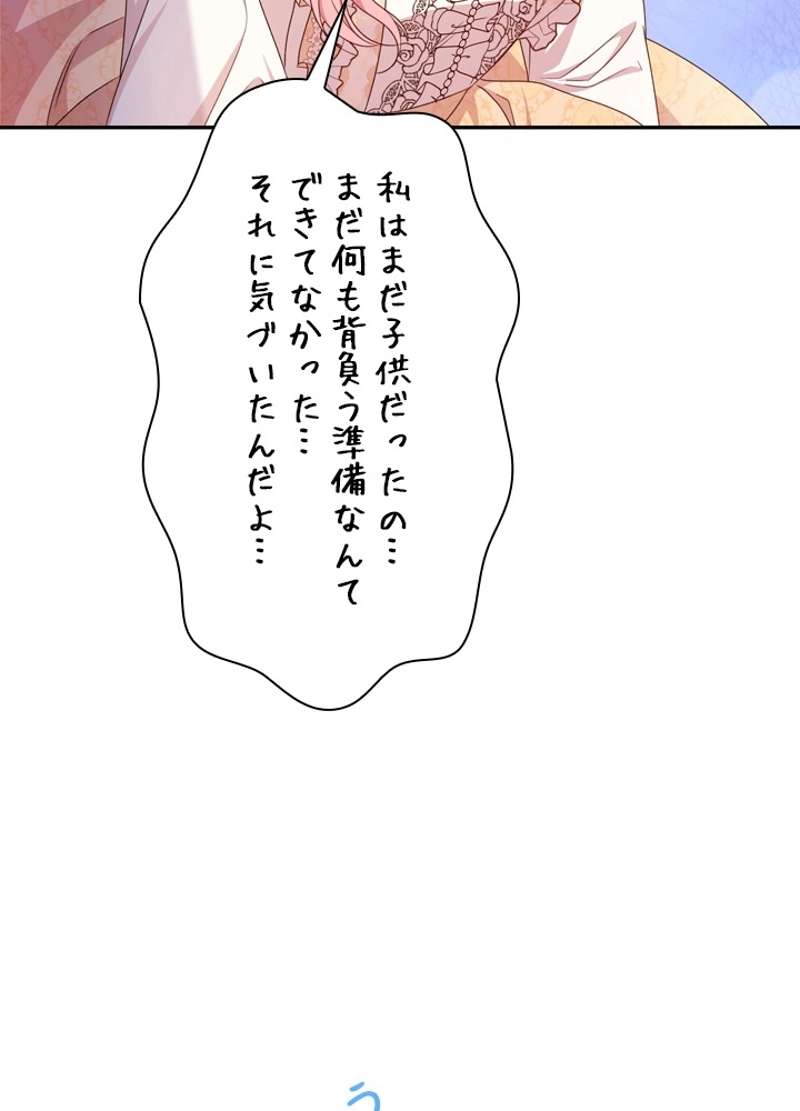 私はまだ子供だったの…
まだ何も背負う準備なんて
できてなかった…
それに気づいたんだよ…
う